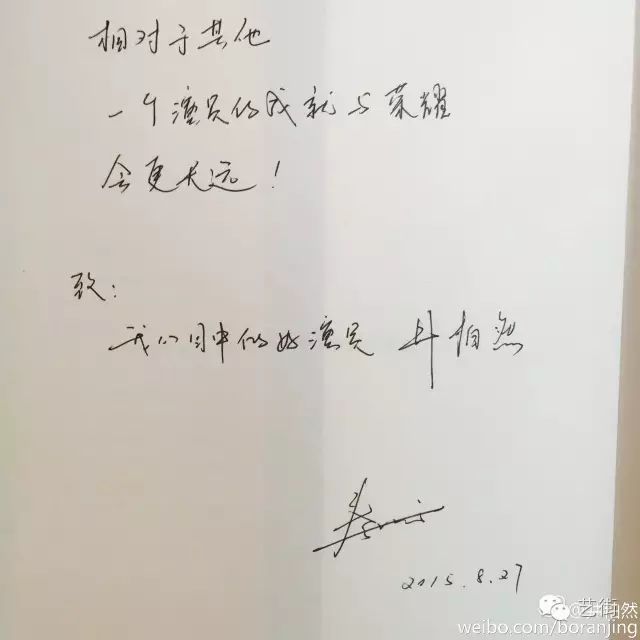 相对于其他
一个演员的成就与荣耀
会更长远！
致：
我们目中的好演员 井柏然
2015.8.27
weibo.com/boranjing